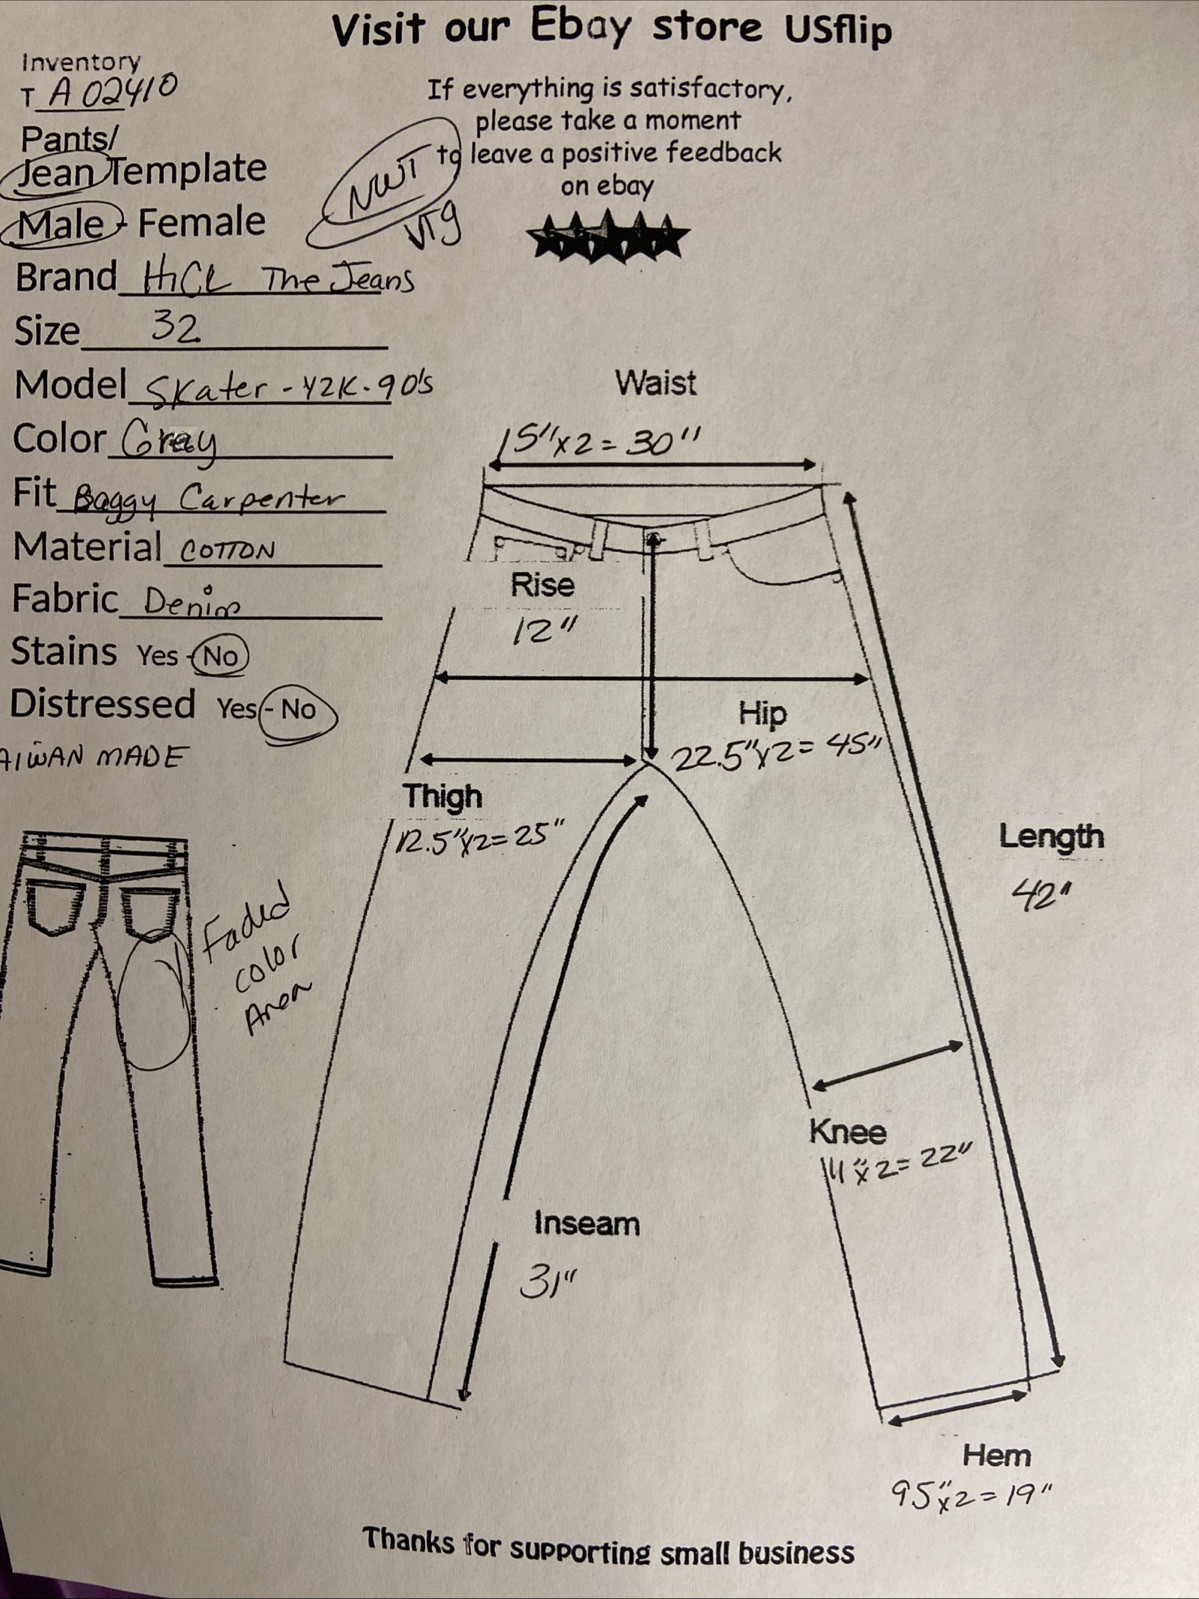 Visit our Ebay store USflip
Inventory
T A02410
If everything is satisfactory,
please take a moment
to leave a positive feedback
on ebay
Pants/
Jean Template
NWT
VTG
Male - Female
Brand HiCL The Jeans
Size 32
Model Skater - Y2K - 90's
Color Gray
Fit Baggy Carpenter
Material COTTON
Fabric Denim
Stains Yes - No
Distressed Yes - No
AIWAN MADE
Waist
15" x2 = 30"
Rise
12"
Hip
22.5" x2 = 45"
Thigh
12.5" x2 = 25"
Length
42"
Faded
color
Area
Knee
11" x2 = 22"
Inseam
31"
Hem
95" x2 = 19"
Thanks for supporting small business